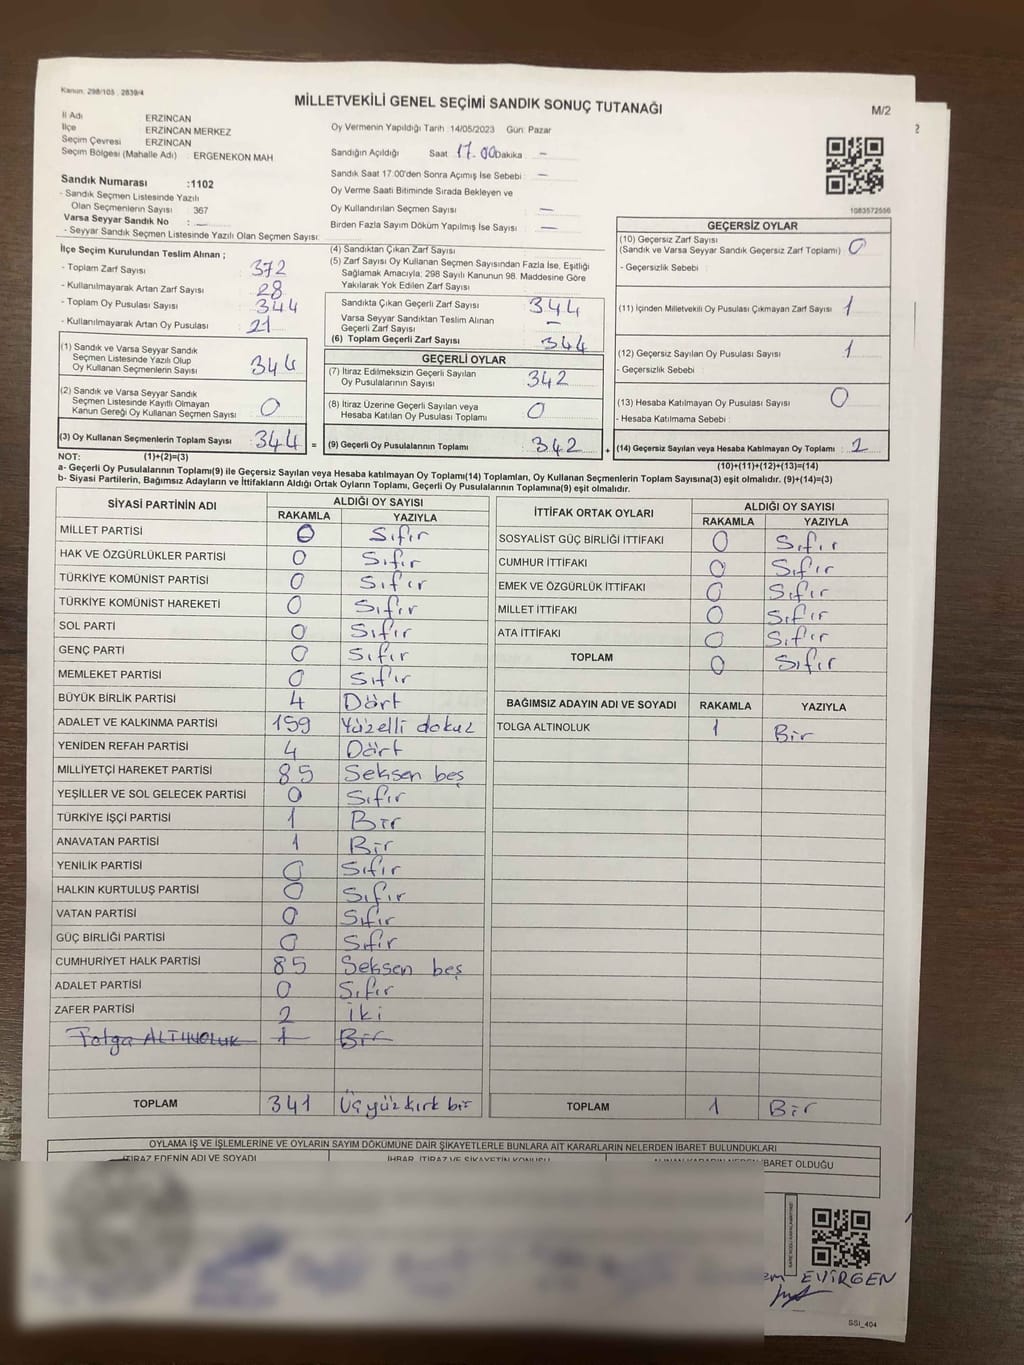 Kanun: 298/105 . 2839/4
MİLLETVEKİLİ GENEL SEÇİMİ SANDIK SONUÇ TUTANAĞI
M/2
İl Adı ERZİNCAN
İlçe ERZİNCAN MERKEZ
Seçim Çevresi ERZİNCAN
Seçim Bölgesi (Mahalle Adı) : ERGENEKON MAH
Oy Vermenin Yapıldığı Tarih :14/05/2023 Gün: Pazar
Sandığın Açıldığı Saat 17.00 Dakika –
Sandık Saat 17.00'den Sonra Açımış İse Sebebi : –
Oy Verme Saati Bitiminde Sırada Bekleyen ve
Oy Kullandırılan Seçmen Sayısı : –
Birden Fazla Sayım Döküm Yapılmış İse Sayısı : –
1083572556
Sandık Numarası :1102
- Sandık Seçmen Listesinde Yazılı
Olan Seçmenlerin Sayısı 367
Varsa Seyyar Sandık No : –
- Seyyar Sandık Seçmen Listesinde Yazılı Olan Seçmen Sayısı:
İlçe Seçim Kurulundan Teslim Alınan ;
- Toplam Zarf Sayısı : 372
- Kullanılmayarak Artan Zarf Sayısı : 28
- Toplam Oy Pusulası Sayısı : 344
- Kullanılmayarak Artan Oy Pusulası : 21
(1) Sandık ve Varsa Seyyar Sandık
Seçmen Listesinde Yazılı Olup
Oy Kullanan Seçmenlerin Sayısı : 344
(2) Sandık ve Varsa Seyyar Sandık
Seçmen Listesinde Kayıtlı Olmayan
Kanun Gereği Oy Kullanan Seçmen Sayısı : 0
(3) Oy Kullanan Seçmenlerin Toplam Sayısı : 344 =
(4) Sandıktan Çıkan Zarf Sayısı
(5) Zarf Sayısı Oy Kullanan Seçmen Sayısından Fazla İse, Eşitliği
Sağlamak Amacıyla; 298 Sayılı Kanunun 98. Maddesine Göre
Yakılarak Yok Edilen Zarf Sayısı
Sandıkta Çıkan Geçerli Zarf Sayısı : 344
Varsa Seyyar Sandıktan Teslim Alınan
Geçerli Zarf Sayısı : –
(6) Toplam Geçerli Zarf Sayısı : 344
GEÇERLİ OYLAR
(7) İtiraz Edilmeksizin Geçerli Sayılan
Oy Pusulalarının Sayısı : 342
(8) İtiraz Üzerine Geçerli Sayılan veya
Hesaba Katılan Oy Pusulası Toplamı : 0
(9) Geçerli Oy Pusulalarının Toplamı : 342 +
GEÇERSİZ OYLAR
(10) Geçersiz Zarf Sayısı
(Sandık ve Varsa Seyyar Sandık Geçersiz Zarf Toplamı) : 0
- Geçersizlik Sebebi :
(11) İçinden Milletvekili Oy Pusulası Çıkmayan Zarf Sayısı : 1
(12) Geçersiz Sayılan Oy Pusulası Sayısı : 1
- Geçersizlik Sebebi :
(13) Hesaba Katılmayan Oy Pusulası Sayısı : 0
- Hesaba Katılmama Sebebi :
(14) Geçersiz Sayılan veya Hesaba Katılmayan Oy Toplamı : 2
NOT: (1)+(2)=(3)
(10)+(11)+(12)+(13)=(14)
a- Geçerli Oy Pusulalarının Toplamı(9) ile Geçersiz Sayılan veya Hesaba katılmayan Oy Toplamı(14) Toplamları, Oy Kullanan Seçmenlerin Toplam Sayısına(3) eşit olmalıdır. (9)+(14)=(3)
b- Siyasi Partilerin, Bağımsız Adayların ve İttifakların Aldığı Ortak Oyların Toplamı, Geçerli Oy Pusulalarının Toplamına(9) eşit olmalıdır.
SİYASİ PARTİNİN ADI ALDIĞI OY SAYISI
RAKAMLA YAZIYLA
MİLLET PARTİSİ 0 Sıfır
HAK VE ÖZGÜRLÜKLER PARTİSİ 0 Sıfır
TÜRKİYE KOMÜNİST PARTİSİ 0 Sıfır
TÜRKİYE KOMÜNİST HAREKETİ 0 Sıfır
SOL PARTİ 0 Sıfır
GENÇ PARTİ 0 Sıfır
MEMLEKET PARTİSİ 0 Sıfır
BÜYÜK BİRLİK PARTİSİ 4 Dört
ADALET VE KALKINMA PARTİSİ 159 Yüzelli dokuz
YENİDEN REFAH PARTİSİ 4 Dört
MİLLİYETÇİ HAREKET PARTİSİ 85 Seksen beş
YEŞİLLER VE SOL GELECEK PARTİSİ 0 Sıfır
TÜRKİYE İŞÇİ PARTİSİ 1 Bir
ANAVATAN PARTİSİ 1 Bir
YENİLİK PARTİSİ 0 Sıfır
HALKIN KURTULUŞ PARTİSİ 0 Sıfır
VATAN PARTİSİ 0 Sıfır
GÜÇ BİRLİĞİ PARTİSİ 0 Sıfır
CUMHURİYET HALK PARTİSİ 85 Seksen beş
ADALET PARTİSİ 0 Sıfır
ZAFER PARTİSİ 2 İki
Tolga ALTINOLUK 1 Bir
TOPLAM 341 Üçyüz kırk bir
İTTİFAK ORTAK OYLARI ALDIĞI OY SAYISI
RAKAMLA YAZIYLA
SOSYALİST GÜÇ BİRLİĞİ İTTİFAKI 0 Sıfır
CUMHUR İTTİFAKI 0 Sıfır
EMEK VE ÖZGÜRLÜK İTTİFAKI 0 Sıfır
MİLLET İTTİFAKI 0 Sıfır
ATA İTTİFAKI 0 Sıfır
TOPLAM 0 Sıfır
BAĞIMSIZ ADAYIN ADI VE SOYADI RAKAMLA YAZIYLA
TOLGA ALTINOLUK 1 Bir
TOPLAM 1 Bir
OYLAMA İŞ VE İŞLEMLERİNE VE OYLARIN SAYIM DÖKÜMÜNE DAİR ŞİKAYETLERLE BUNLARA AİT KARARLARIN NELERDEN İBARET BULUNDUKLARI
İTİRAZ EDENİN ADI VE SOYADI İHBAR, İTİRAZ VE ŞİKAYETİN KONUSU İBARET OLDUĞU
EVİRGEN
SSI_404